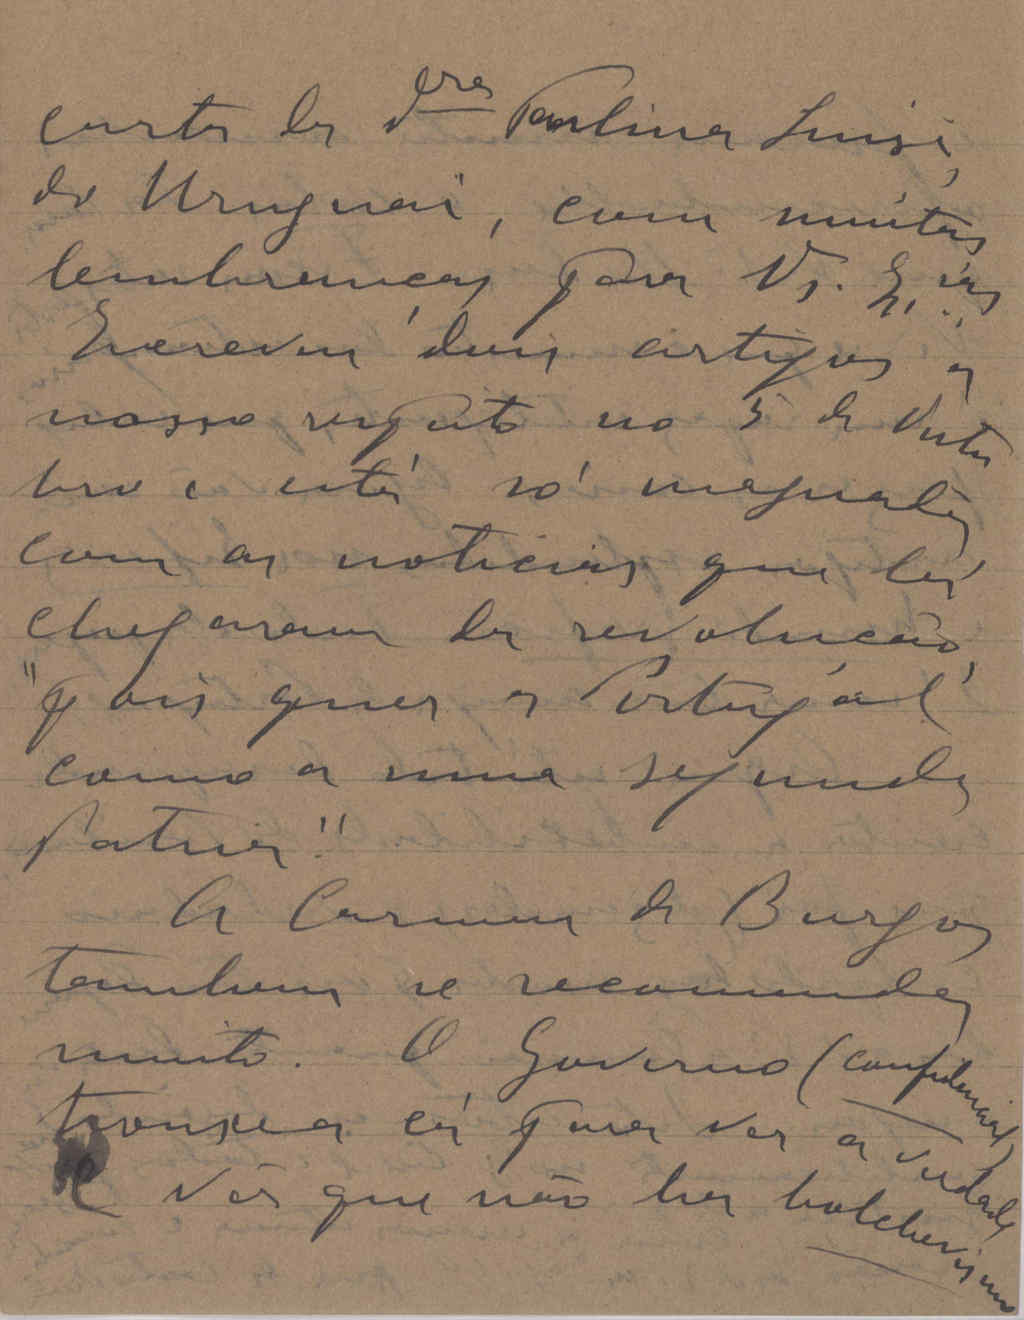 carta da dra Paulina Luisi,
do Uruguai, com muitas
lembranças para Vs. Exias.
Escreveu dois artigos a
nosso respeito no 5 de Outu
bro e está só magoada
com as noticias que lá
chegaram da revolução,
"pois quer a Portugal
como a uma segunda
Patria".
A Carmen de Burgos
tambem se recomenda
muito. O Governo (confidencial)
trouxe-a cá para ver a verdade
e vêr que não ha bolchevismo